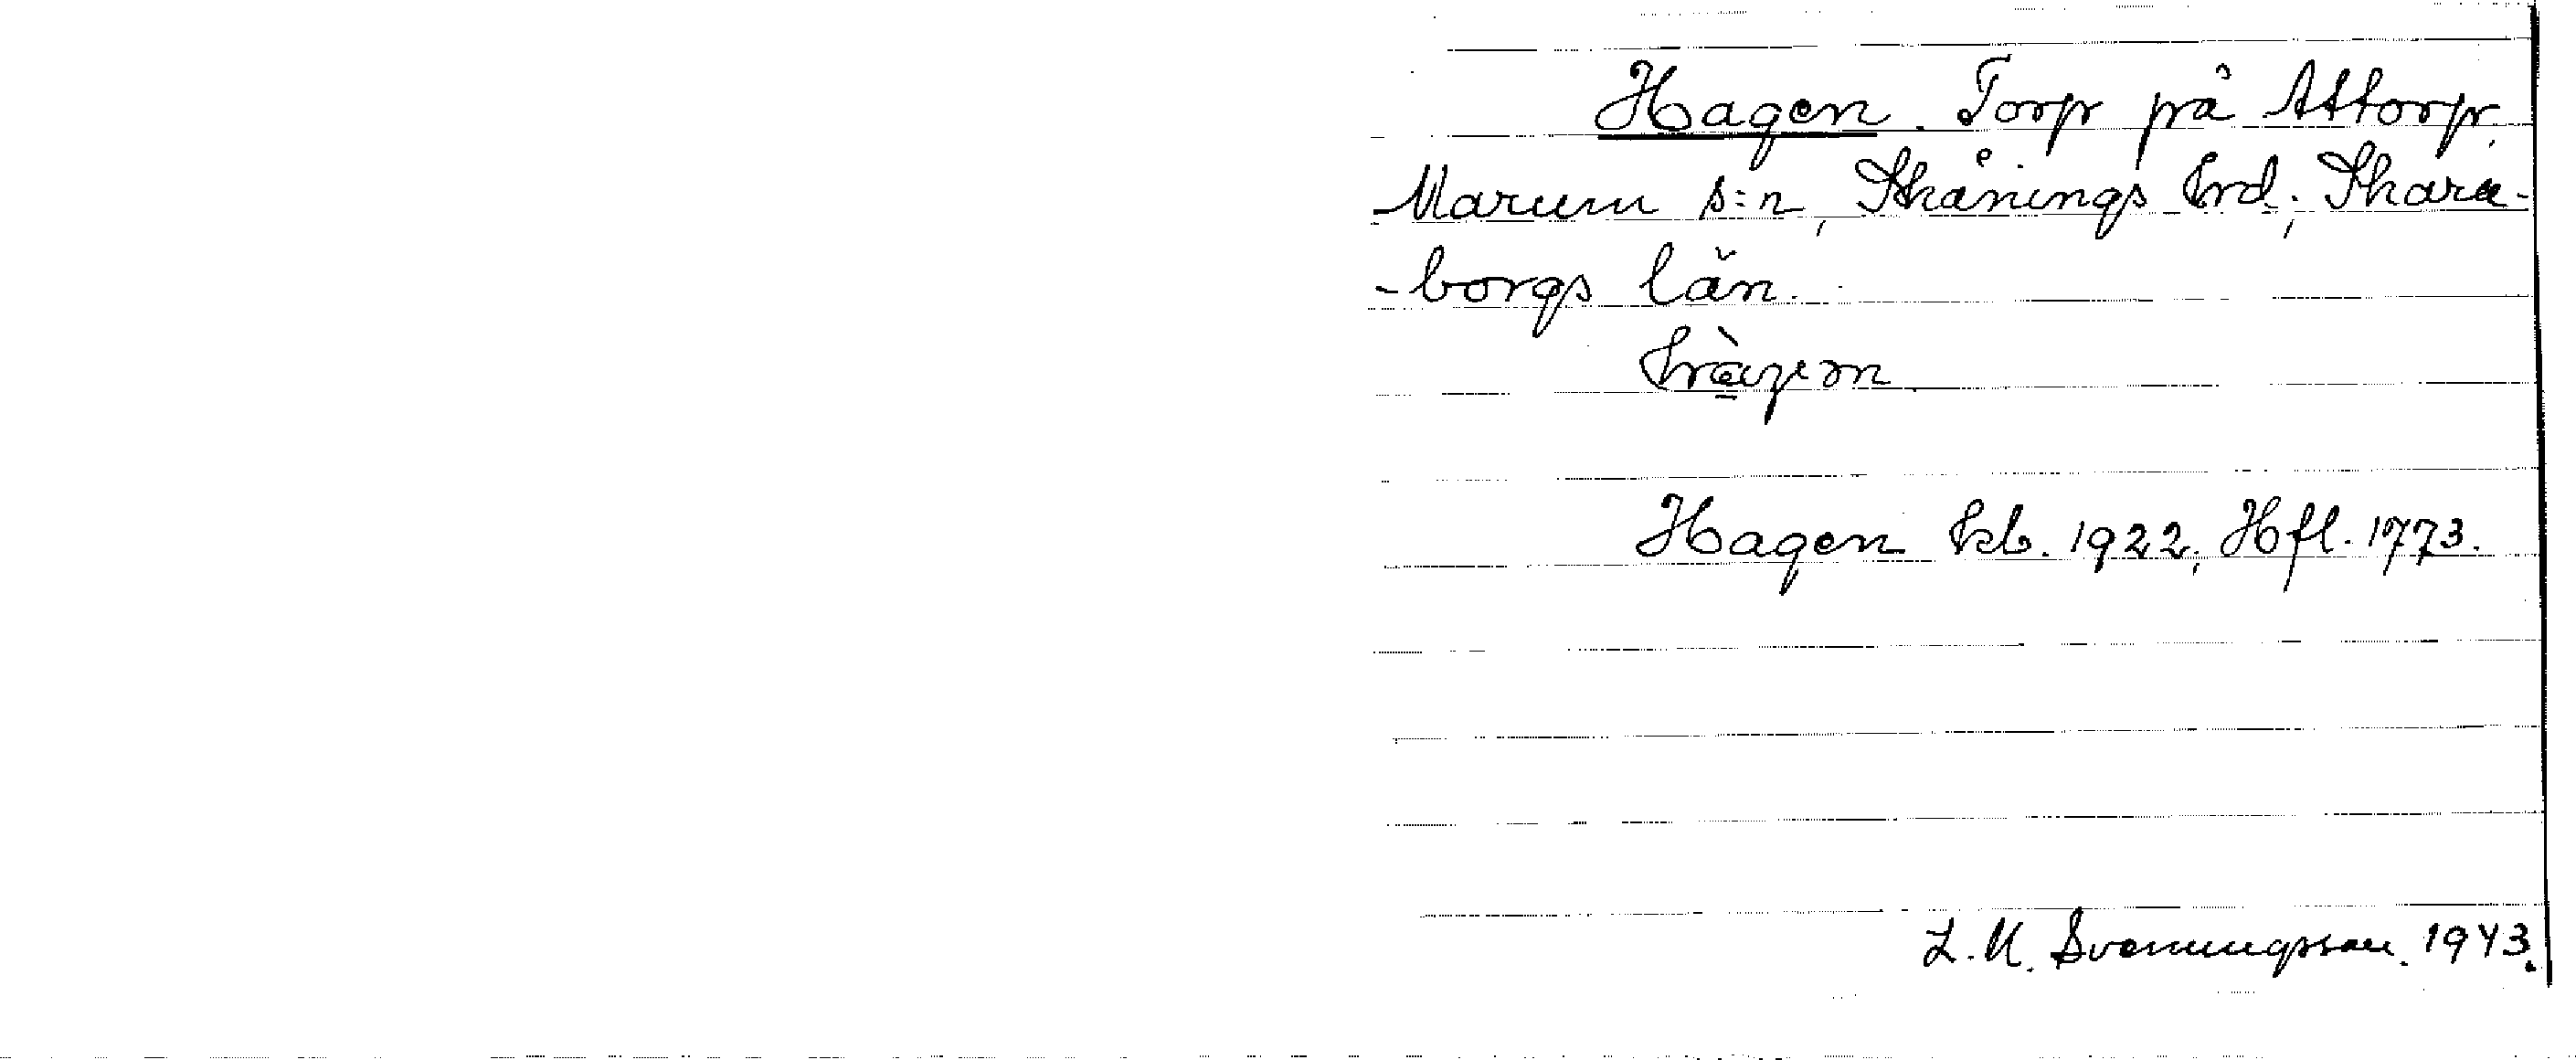 Hagen. Torp på Attorp,
Marum s:n, Skånings hrd, Skara-
-borgs län.
Hagen kb. 1922, Hfl. 1773.
L. M. Svenungsson. 1943.